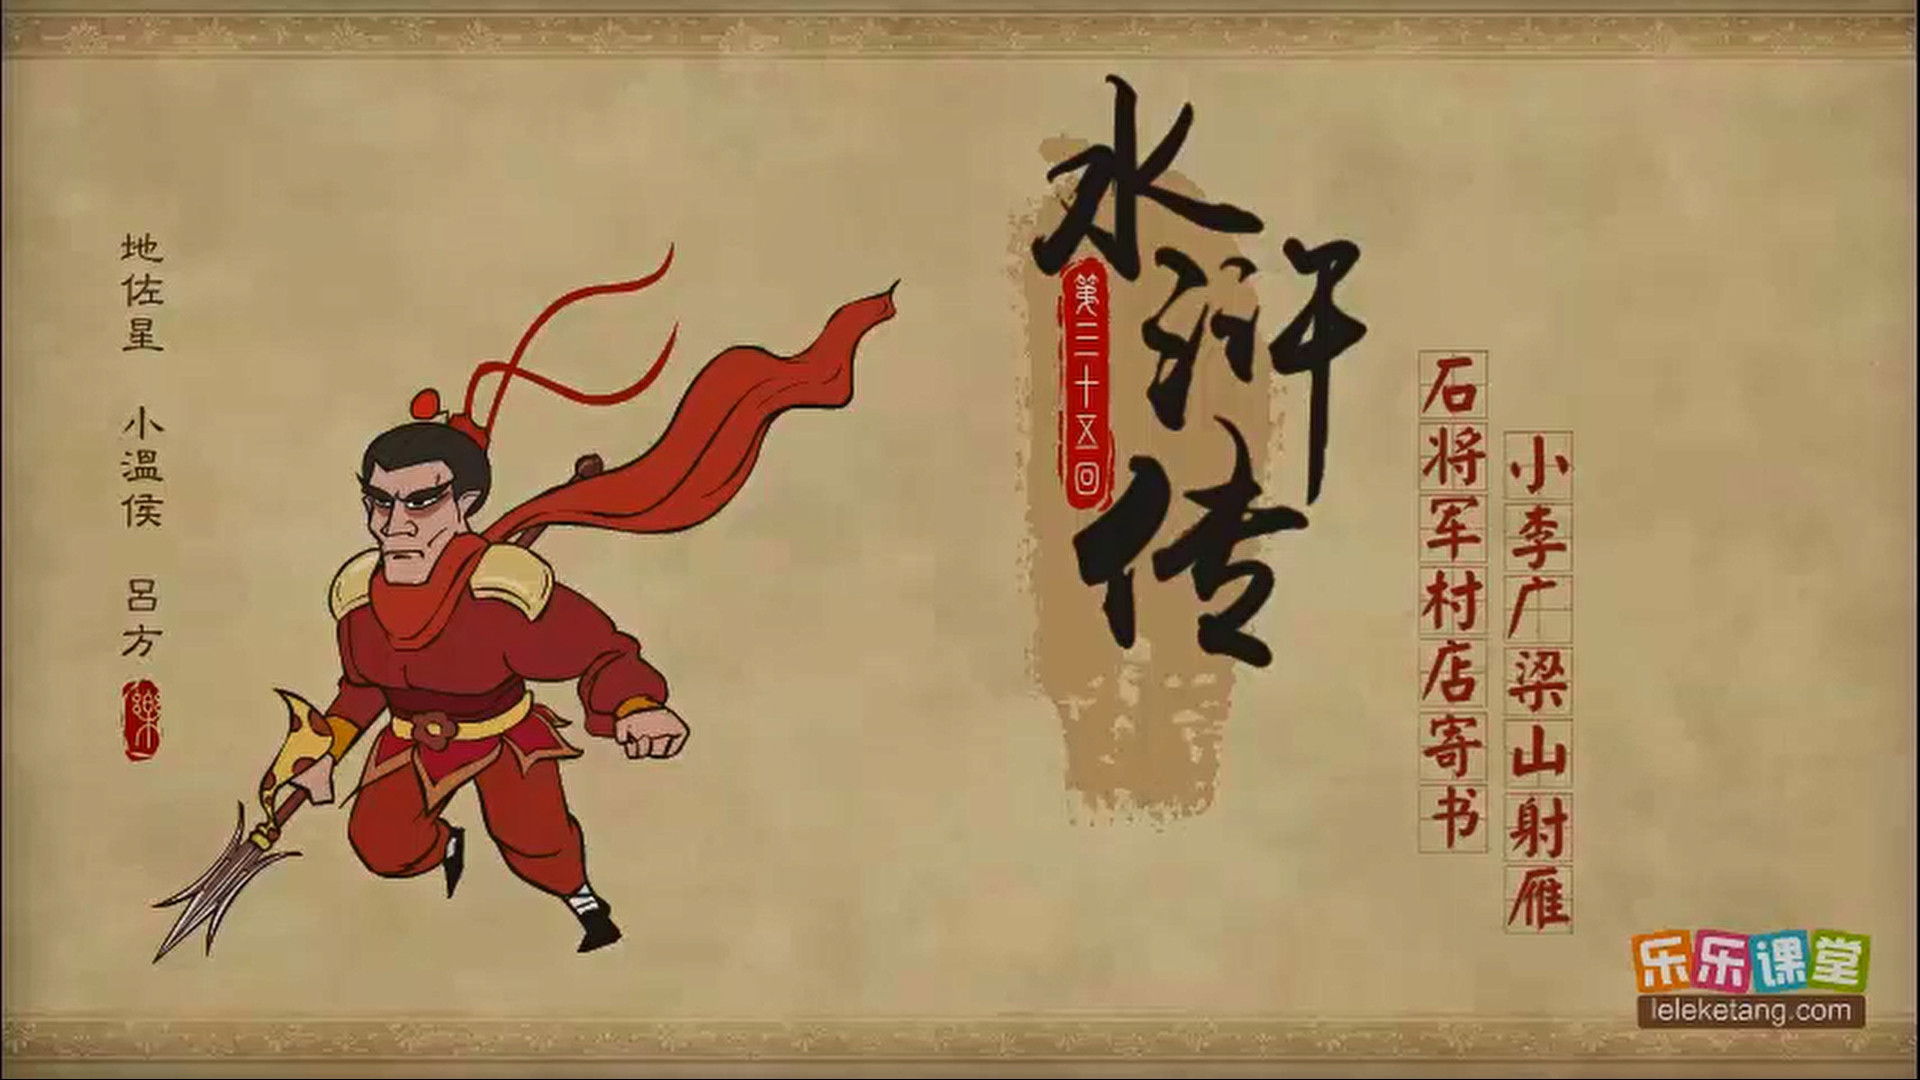 地佐星 小温侯 吕方
樂
水浒传
第三十五回
石将军村店寄书
小李广梁山射雁
乐乐课堂
leleketang.com